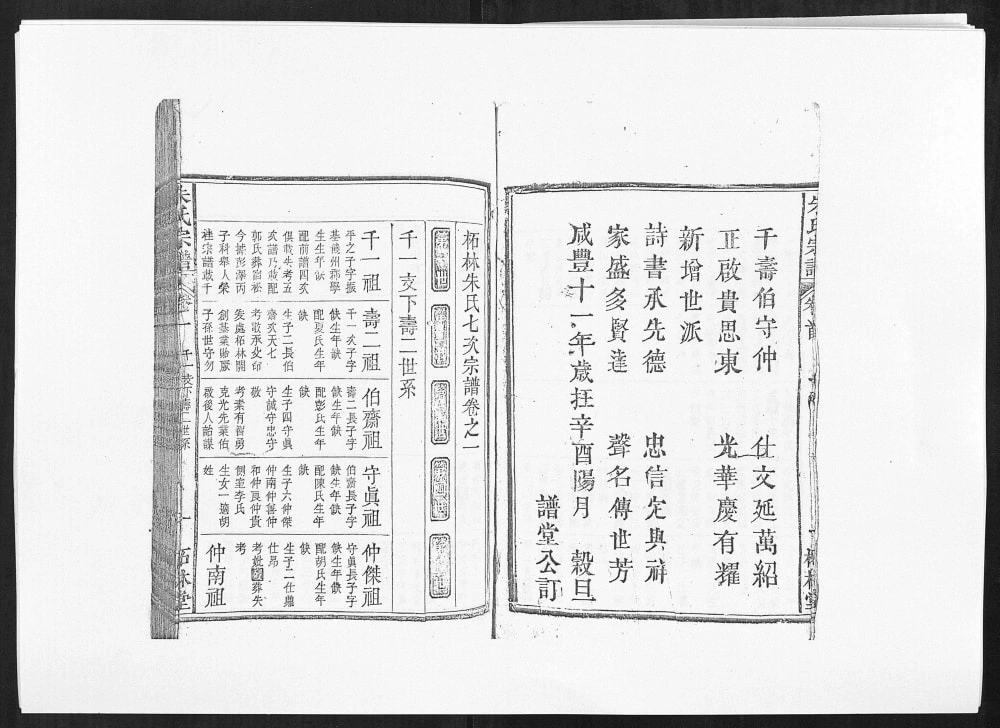 千壽伯守仲　仕文延萬紹
正啟貴思東　光華慶有耀
新增世派
詩書承先德　忠信定典祥
家盛多賢達　聲名傳世芳
咸豐十一年歲在辛酉陽月　穀旦
譜堂公訂
朱氏宗譜
卷首
柘林堂
柘林朱氏七次宗譜卷之一
千一支下壽二世系
千一祖
平之子字振
生生年缺
配前譜四次
俱載失考五
郭氏葬宿松
今據彭澤丙
子科舉人榮
桂宗譜載千
壽二祖
千一次子字
缺生年缺
配夏氏生年
缺
生子二長伯
齋次天七
子孫世守勿
伯齋祖
壽二長子字
缺生年缺
配彭氏生年
缺
生子四守眞
守誠守忠守
敬
考素有智勇
克光先業佑
啟後人貽謀
守眞祖
伯齋長子字
缺生年缺
配陳氏生年
缺
生子六仲傑
仲南仲善仲
和仲良仲貴
側室李氏
生女一適胡
姓
仲傑祖
守眞長子字
缺生年缺
配胡氏生年
缺
生子二仕蘭
仕昂
考妣葬失
考
仲南祖
朱氏宗譜
卷一
千一支下壽二世系
一
柘林堂